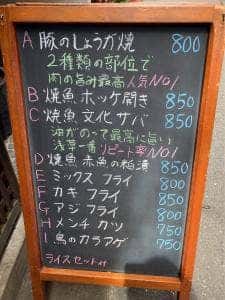 A 豚のしょうが焼 800
2種類の部位で
肉の旨み最高 人気No1
B 焼魚 ホッケ開き 850
C 焼魚 文化サバ 850
油がのって最高に旨い
浅草一番 リピート率No1
D 焼魚 赤魚の粕漬 850
E ミックス フライ 800
F カキ フライ 850
G アジ フライ 800
H メンチ カツ 750
I 鳥のカラアゲ 750
ライスセット付